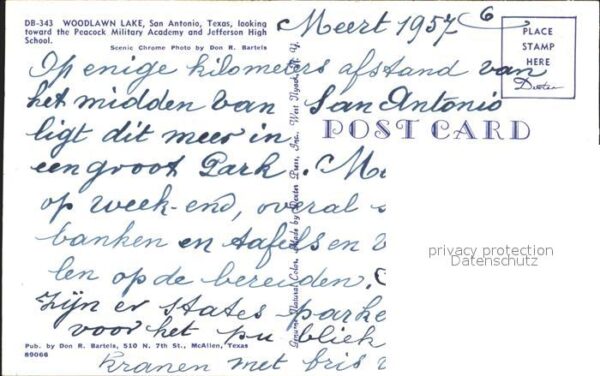 DB-343 WOODLAWN LAKE, San Antonio, Texas, looking
toward the Peacock Military Academy and Jefferson High
School.
Scenic Chrome Photo by Don R. Bartels
Meert 1957 6
PLACE
STAMP
HERE
Dexter
Op enige kilometers afstand van
het midden van San Antonio
ligt dit meer in
een groot Park. M
POST CARD
op week-end, overal s
banken en tafels en
len op de bereiden.
Zijn er states parke
voor het publiek
kranen met fris
Genuine Natural Color, Made by Dexter Press, Inc., West Nyack, N. Y.
privacy protection
Datenschutz
Pub. by Don R. Bartels, 510 N. 7th St., McAllen, Texas
89066